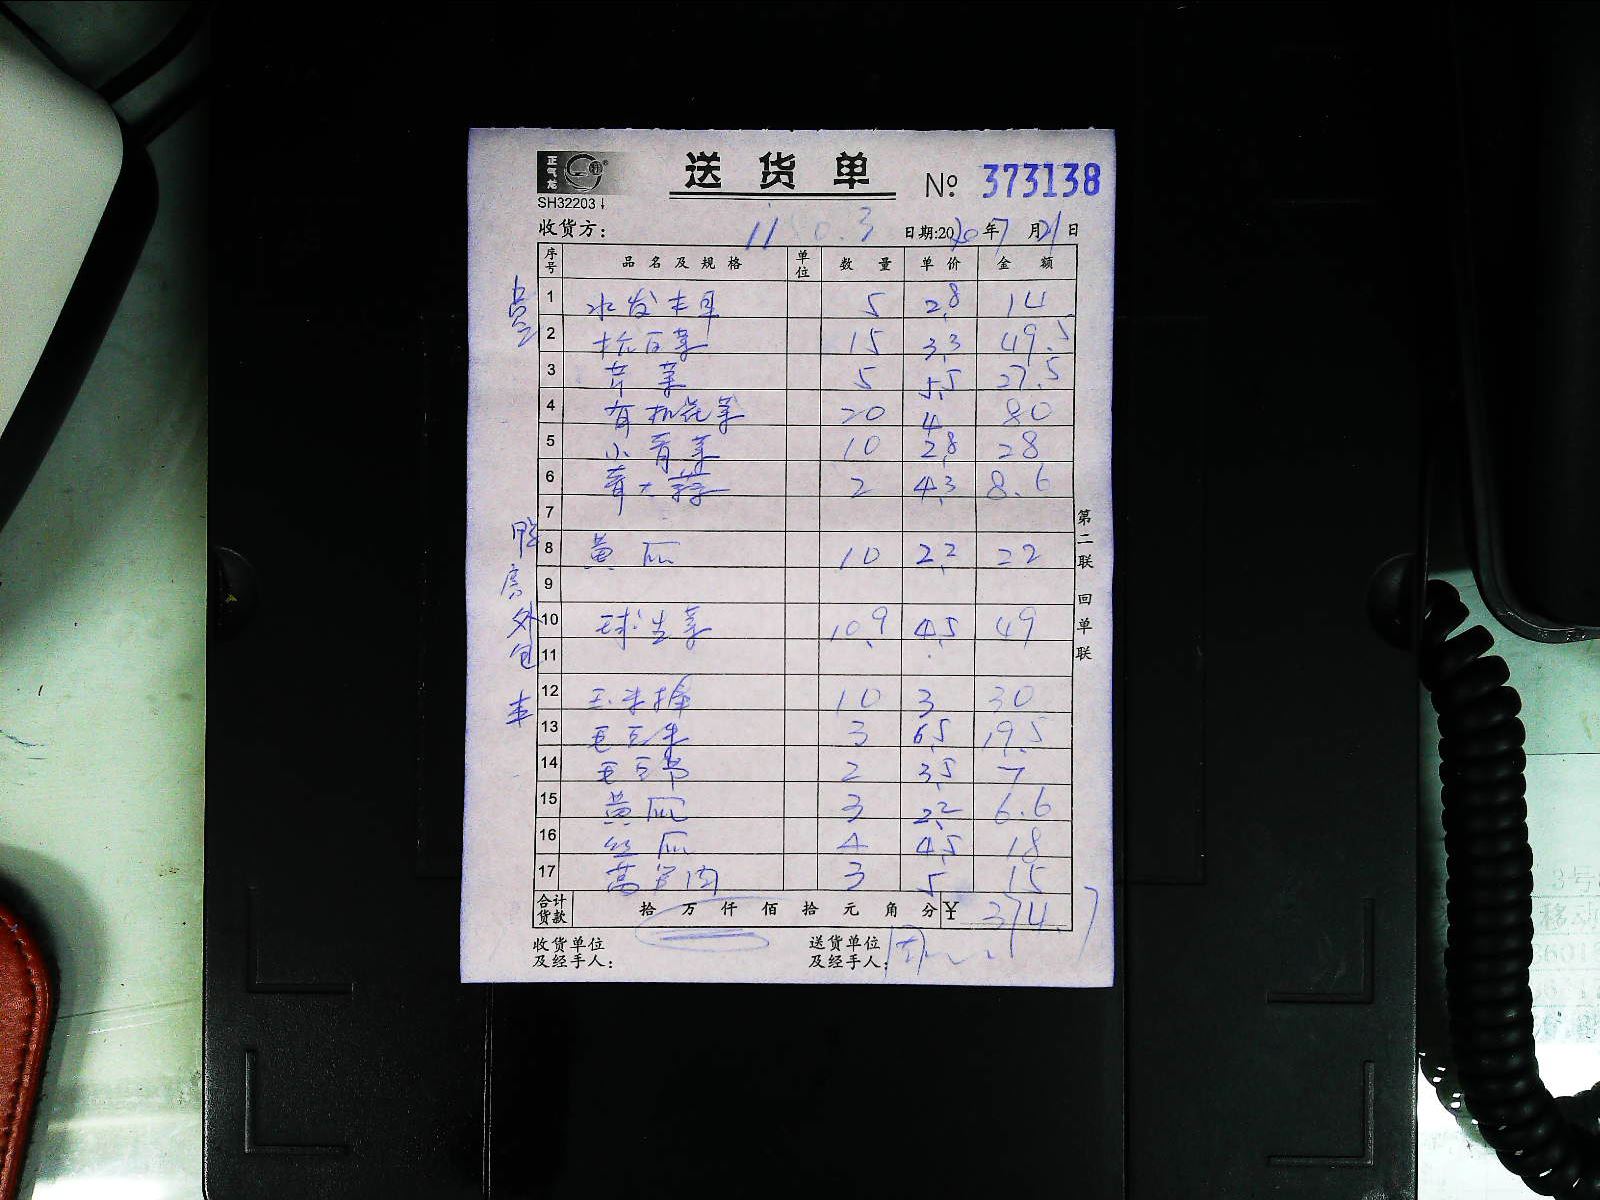 正气龙
送货单 № 373138
SH32203
收货方: 日期:2020年7月21日
序号 品名及规格 单位 数量 单价 金额
1 水发木耳 5 2.8 14
2 杭白菜 15 3.3 49.5
3 芹菜 5 5.5 27.5
4 有机花菜 20 4 80
5 小青菜 10 2.8 28
6 青大蒜 2 4.3 8.6
7
8 黄瓜 10 2.2 22
9
10 球生菜 10.9 4.5 49
11
12 玉米棒 10 3 30
13 毛豆米 3 6.5 19.5
14 毛豆节 2 3.5 7
15 黄瓜 3 2.2 6.6
16 丝瓜 4 4.5 18
17 莴笋肉 3 5 15
合计货款 拾 万 仟 佰 拾 元 角 分 ¥ 374.7
收货单位及经手人: 送货单位及经手人:
第二联 回单联
外包